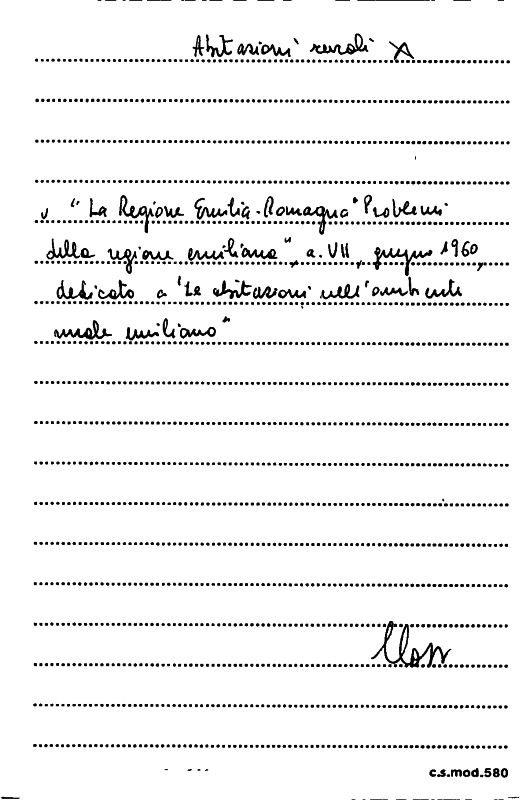 Abitazioni rurali X
" La Regione Emilia-Romagna" Problemi
della regione emiliana", a. VII, giugno 1960,
dedicato a "Le abitazioni nell'ambiente
rurale emiliano"
c.s.mod.580